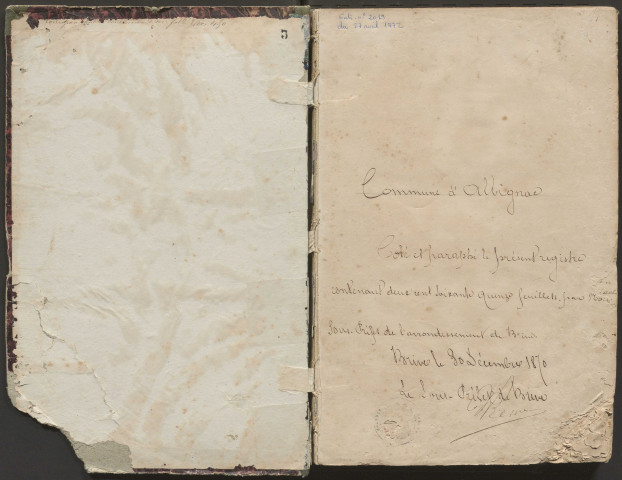 5
du 27 avril 1972
Commune d'Albignac
Coté et paraphé le présent registre
contenant deux cent soixante quinze feuillets, par Nous
Sous-Préfet de l'arrondissement de Brive
Brive le 30 Décembre 1870
Le Sous-Préfet de Brive